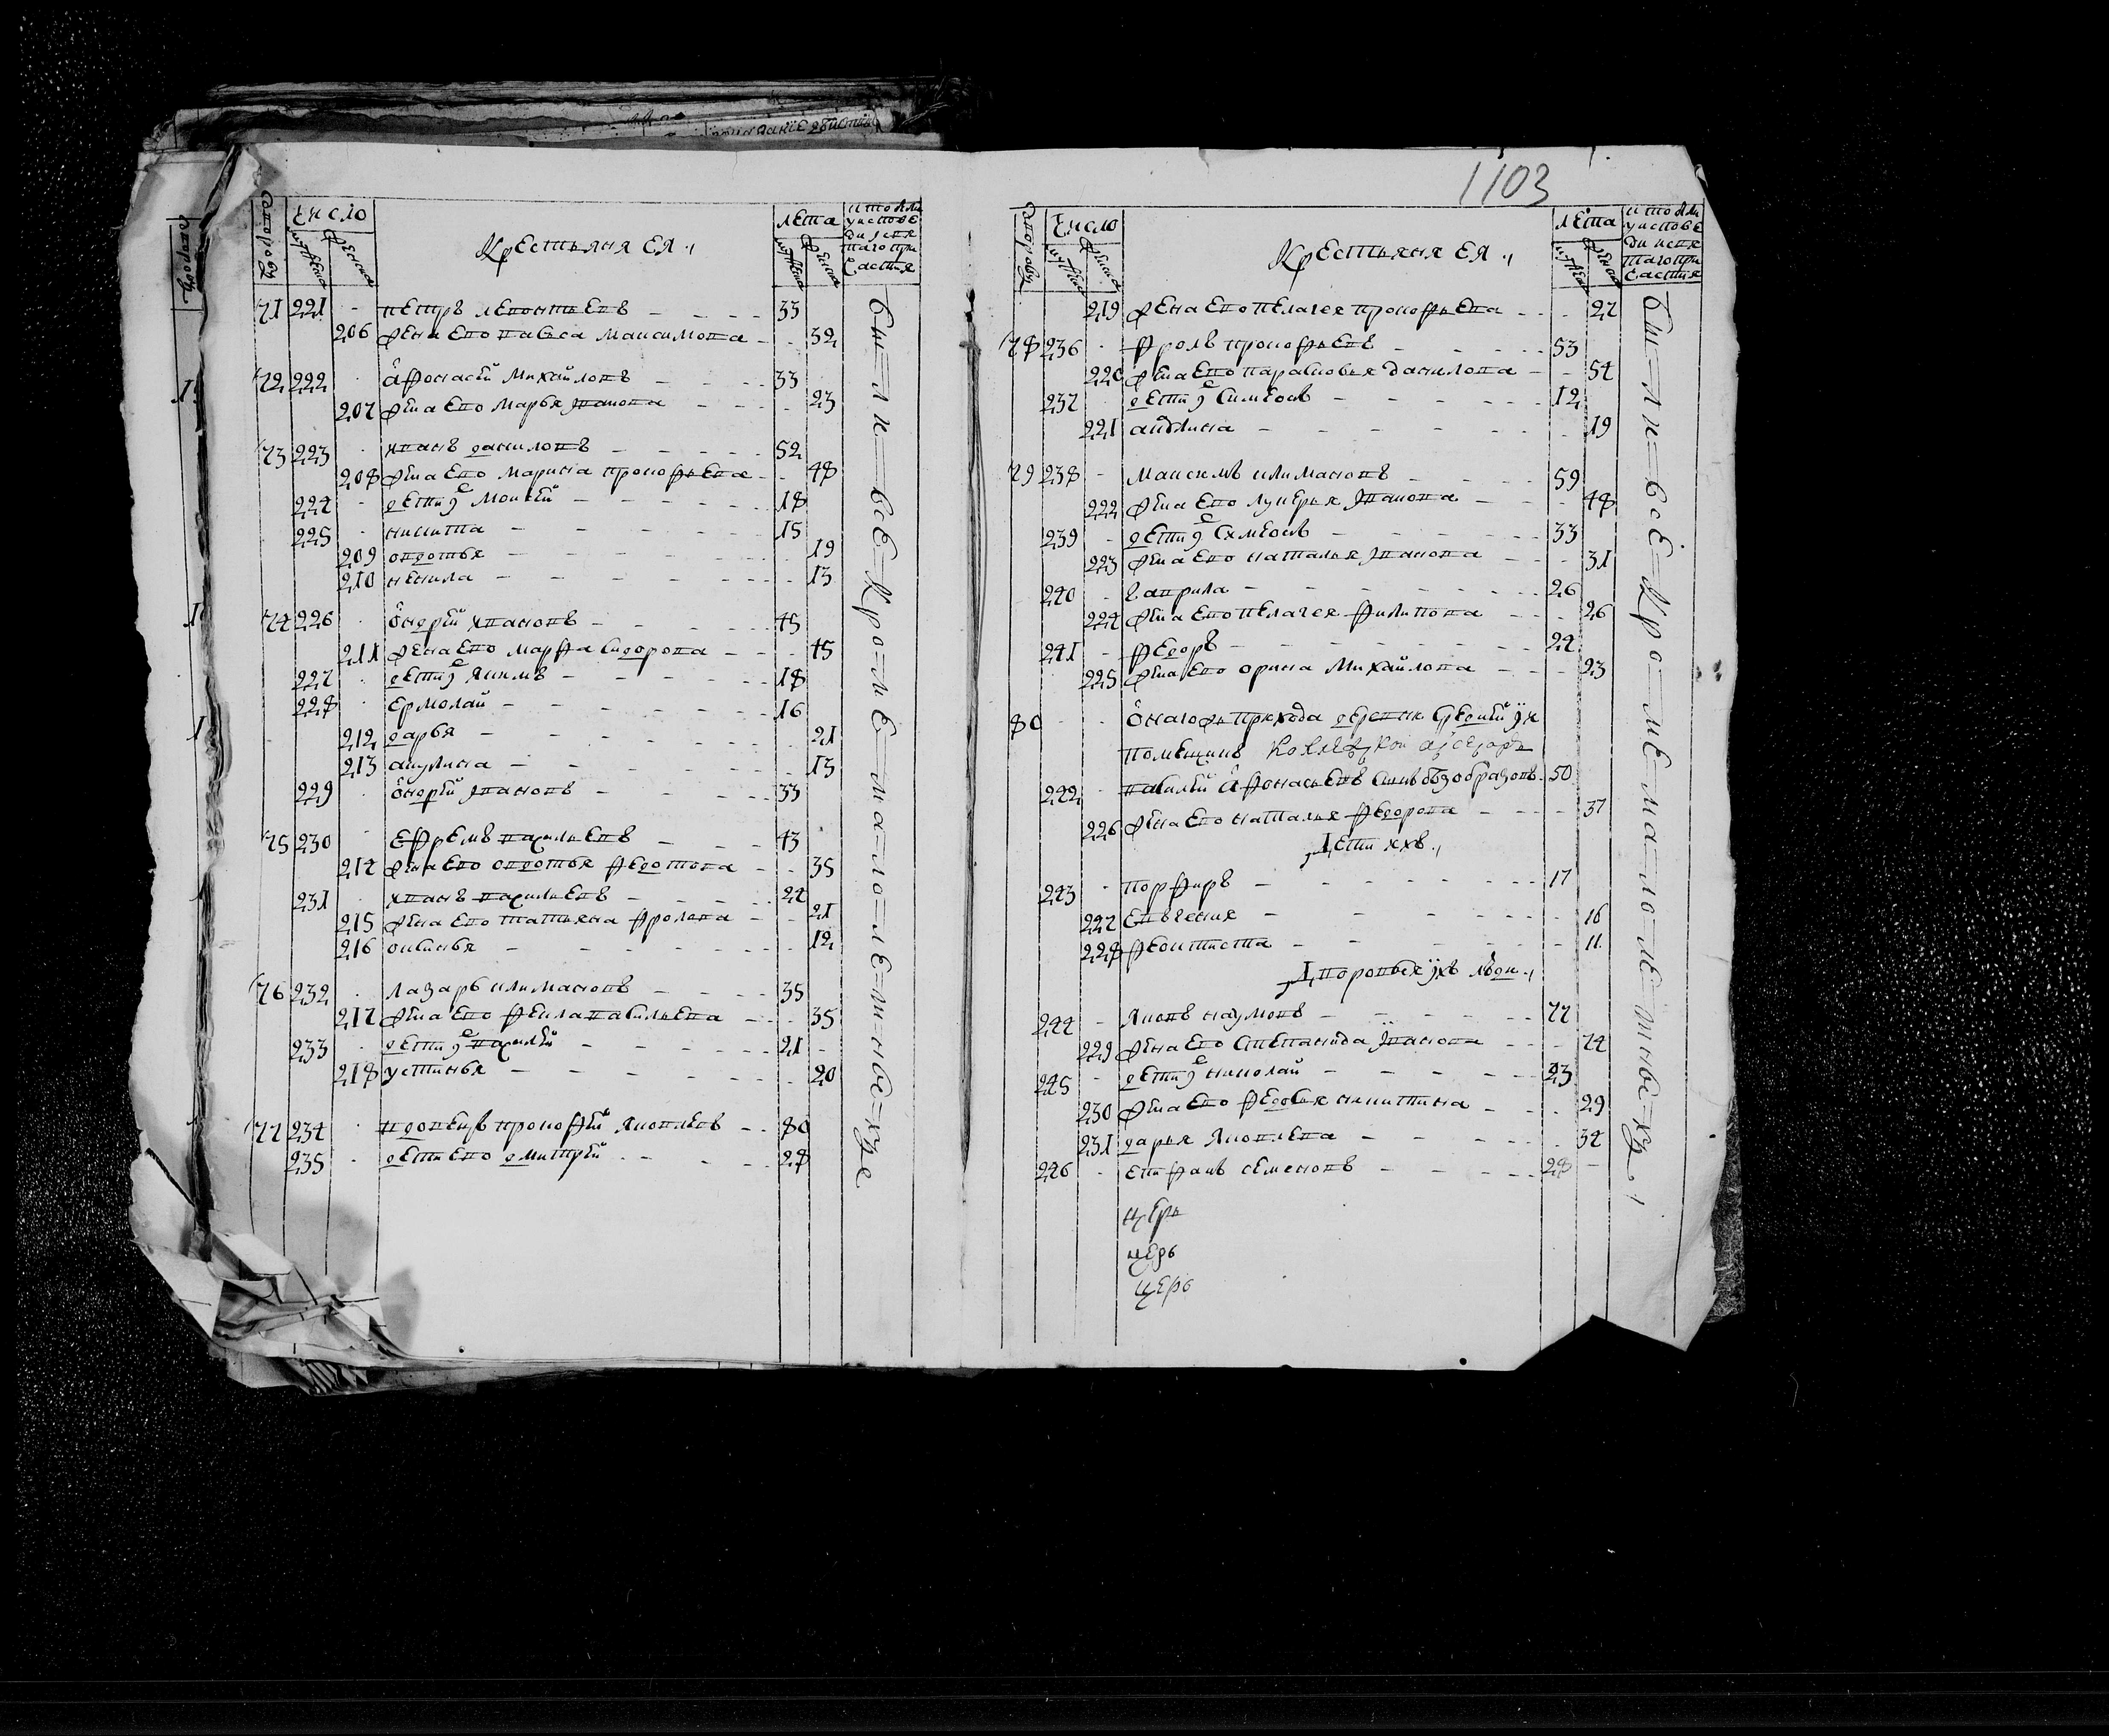 1103
Число
лета
Крестьяня ея
71 221 петръ леонтьевъ 33
206 жена ево васса максимова 32
72 222 афонасей михайловъ 33
207 жена ево марья иванова 23
73 223 иванъ даниловъ 52
208 жена ево марина прокофьева 48
224 дети е моисей 18
225 никита 15
209 авдотья 19
210 ненила 13
74 226 андрей ивановъ 45
211 жена ево марфа сидорова 45
227 дети е якимъ 18
228 ермолай 16
212 дарья 21
213 акулина 13
229 андрей ивановъ 33
75 230 ефремъ васильевъ 43
214 жена ево овдотья федотова 35
231 иванъ васильевъ 24
215 жена ево татьяна фролова 21
216 оксинья 12
76 232 лазарь климановъ 35
217 жена ево фекла васильева 35
233 дети е василей 21
218 устинья 20
77 234 вдовецъ прокофей яковлевъ 80
235 дети ево дмитрей 28
были все кроме малолетныхъ
Число
лета
Крестьяня ея
219 жена ево пелагея прокофьева 27
78 236 фролъ прокофьевъ 53
220 жена ево парасковья данилова 54
237 дети е симеонъ 12
221 акулина 19
79 238 максимъ климановъ 59
222 жена ево лукерья иванова 48
239 дети е симеонъ 33
223 жена ево наталья иванова 31
240 гаврила 26
224 жена ево пелагея филипова 26
241 федоръ 24
225 жена ево орина михайлова 23
80 онаго жъ прихода деревни
помещикъ
242 василей афонасьевъ сынъ безобразовъ 50
226 жена ево наталья федорова 37
Дети ихъ
243 порфиръ 17
227 евгения 16
228 феоктиста 11
Дворовыя ихъ люди
244 яковъ наумовъ 77
229 жена ево степанида иванова 74
245 дети е николай 23
230 жена ево федосья никитина 29
231 дарья яковлева 34
246 епифанъ семеновъ 28
церь
церь
церь
были все кроме малолетныхъ